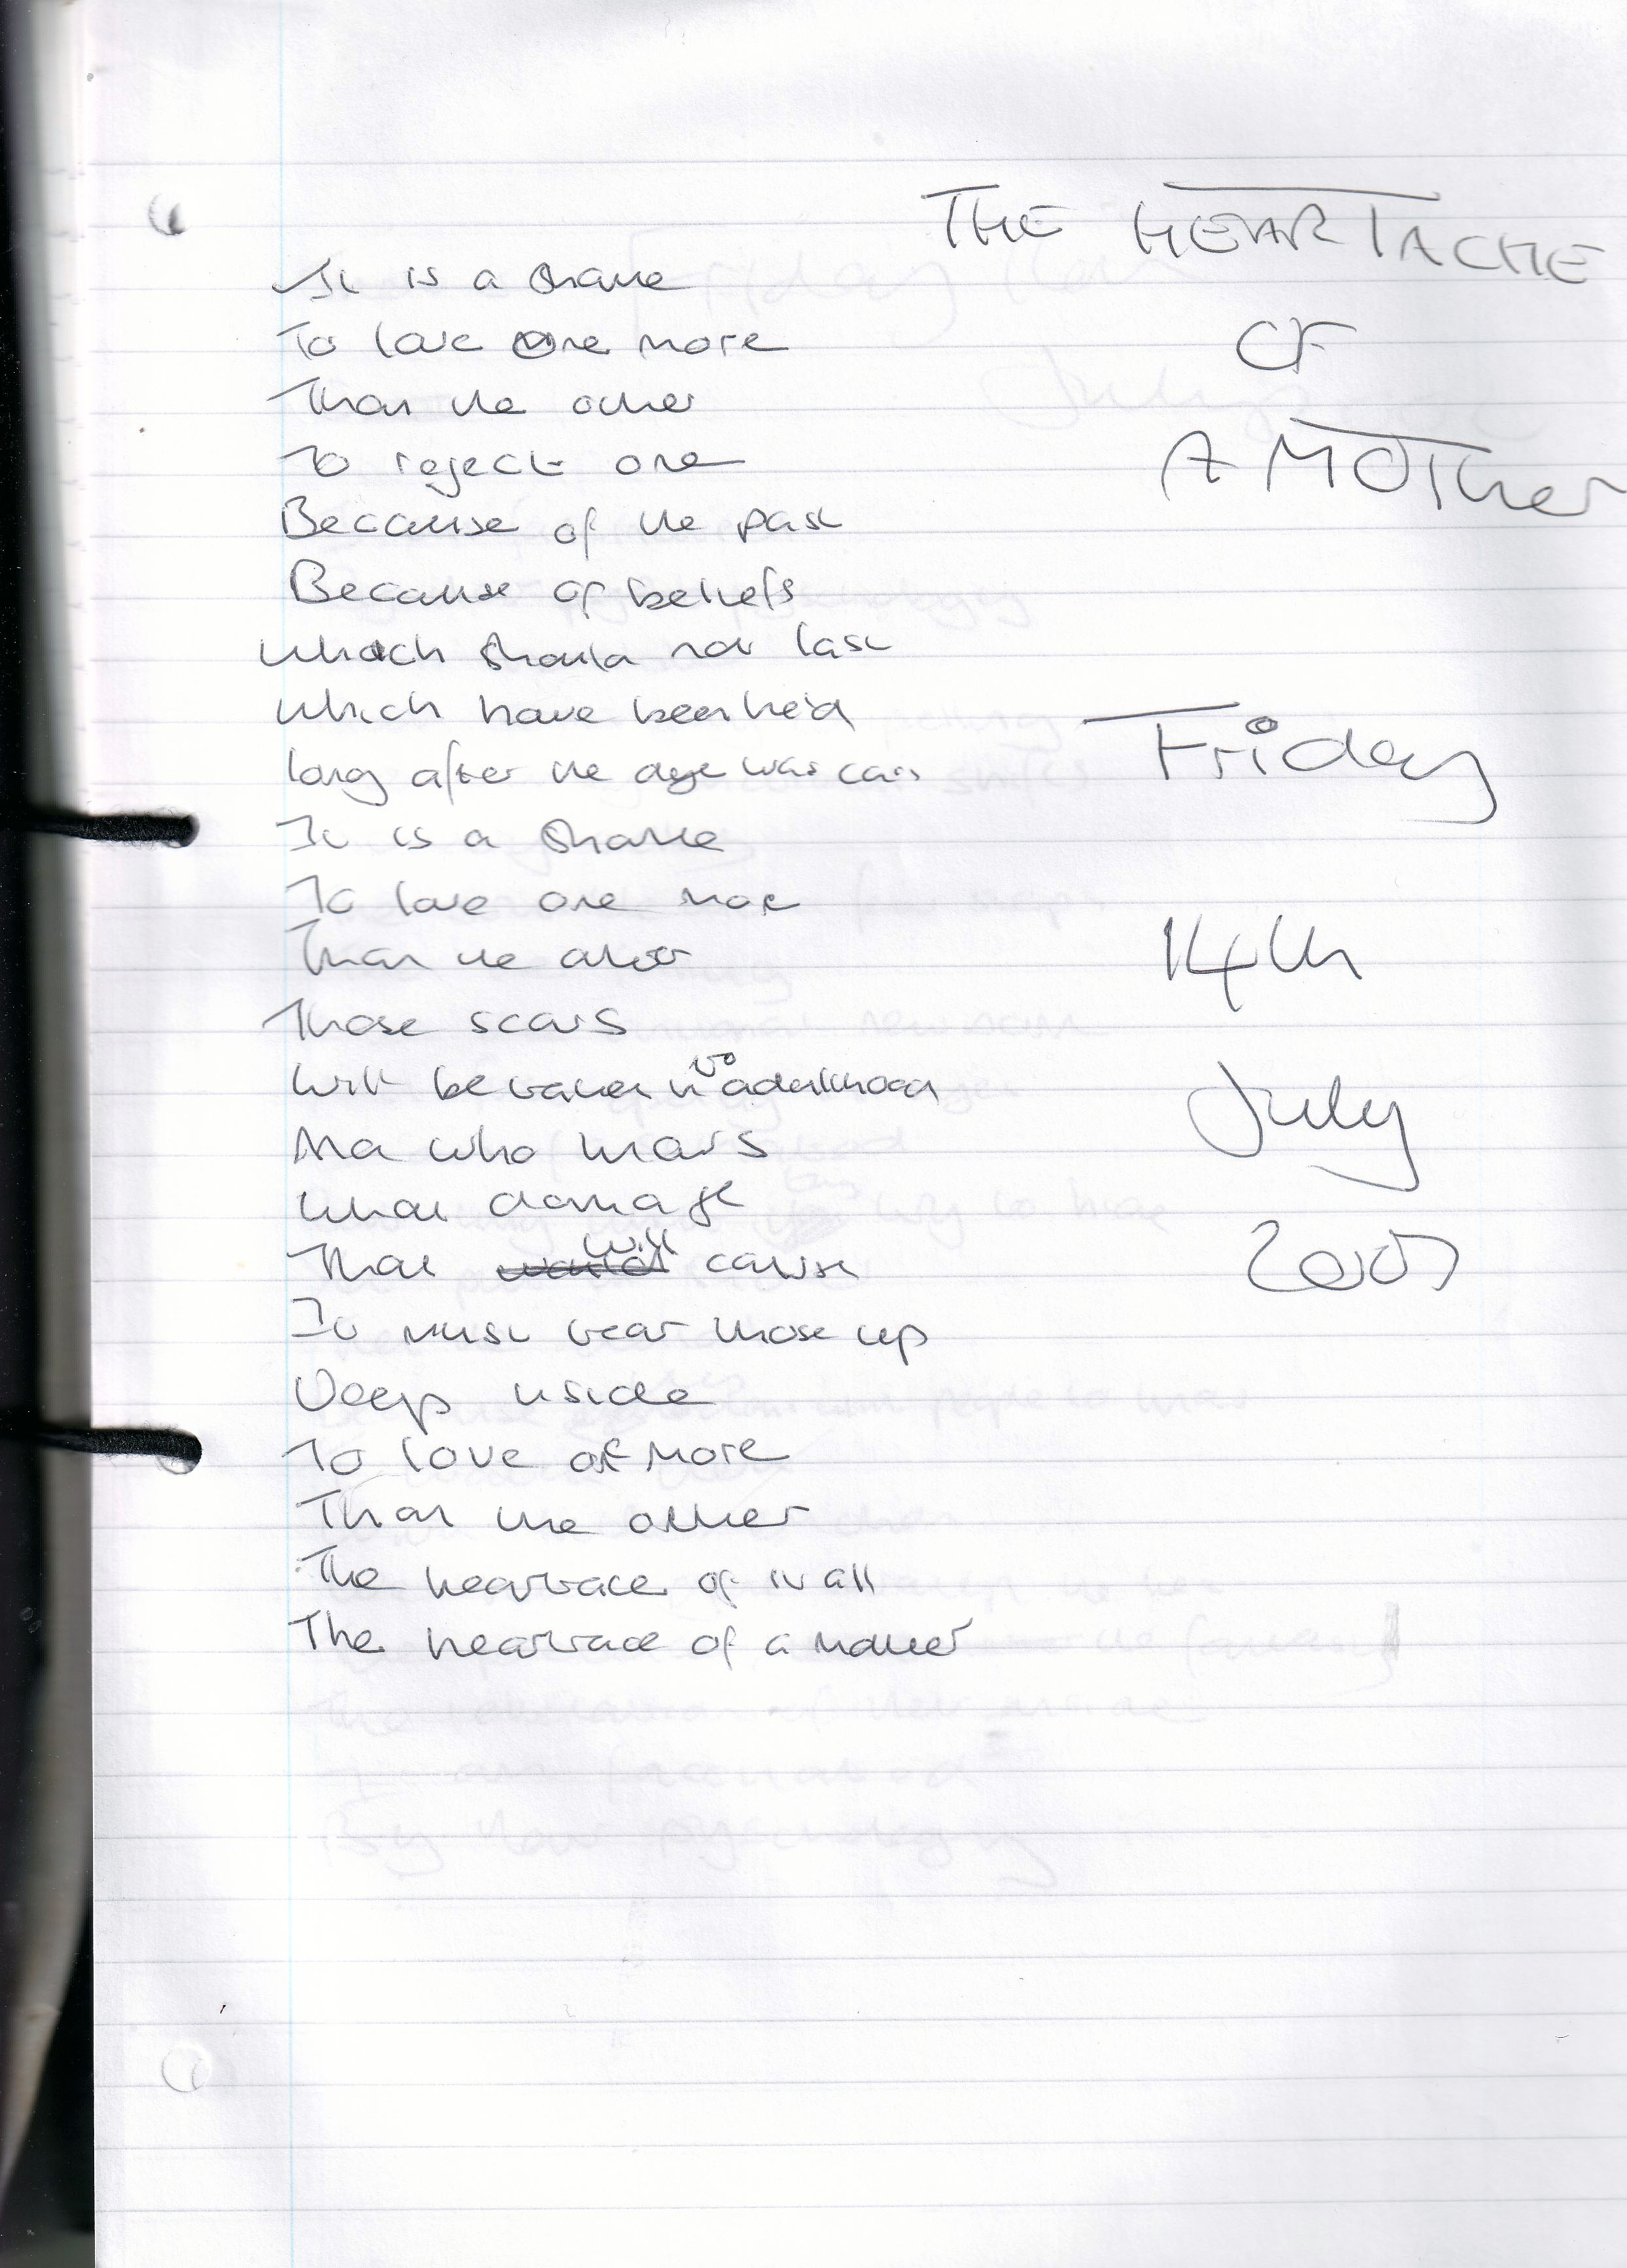 THE HEARTACHE
OF
A MOTHER
Friday
14th
July
It is a shame
To love one more
Than the other
To reject one
Because of the past
Because of beliefs
Which should not last
Which have been held
long after the dye was cast
It is a shame
To love one more
Than the other
Those scars
Will be taken to adulthood
And who knows
What damage
That will cause
It must tear those up
Deep inside
To love one more
Than the other
The heartache of it all
The heartache of a mother